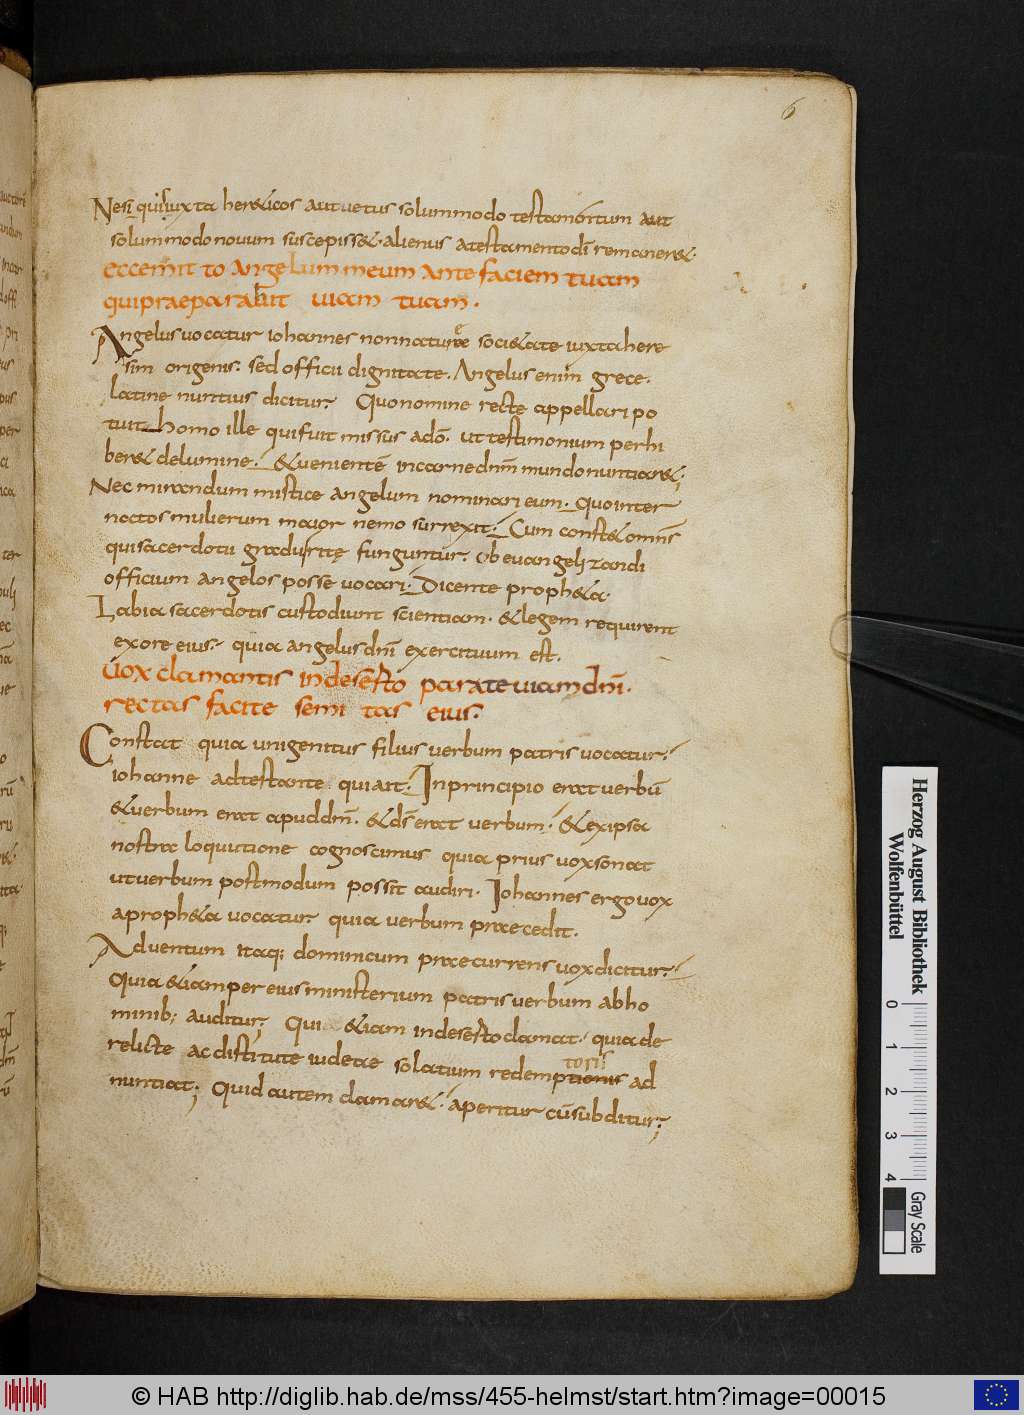 6
Nesi quis iuxta her&icos aut uetus solummodo testamentum aut
solummodo novum suscepiss&. alienus a testamento dī reman er&.
ecce mitto Angelum meum Ante faciem tuam
qui praeparabit uiam tuam.
Angelus uocatur iohannes non naturae soci&ate iuxta here
sim origenis. sed officii dignitate. Angelus enim grece.
latine nuntius dicitur. Quo nomine recte appellari po
tuit homo ille qui fuit missus a dō. ut testimonium perhi
ber& de lumine. & uenientē in carne dnm̄ mundo nuntiar&;
Nec mirandum mistice angelum nominari eum. Quo inter
natos mulierum maior nemo surrexit. Cum const& omns̄
qui sacerdotii gradu rite funguntur. ob euangelizandi
officium angelos posse uocari. Dicente proph&a.
Labia sacerdotis custodiunt scientiam. & legem requirent
ex ore eius. quia angelus dnī exercituum est.
Vox clamantis in deserto parate uiam dnī.
rectas facite semitas eius.
Constat quia unigenitus filius uerbum patris uocatur.
iohanne adtestante qui ait. In principio erat uerbū
& uerbum erat apud dm̄. & ds̄ erat uerbum. & ex ipsa
nostra loquutione cognoscimus quia prius uox sonat
ut uerbum postmodum possit audiri. Iohannes ergo uox
a proph&a uocatur quia uerbum praecedit.
Aduentum itaq; dominicum praecurrens uox dicitur.
Quia &iam per eius ministerium patris uerbum ab ho
minib; auditur; Qui &iam in deserto clamat. quia de
relicte ac distitute iudeae solatium redemptionis ad
toris
nuntiat; Quid autem clamar&. aperitur cū subditur;
Herzog August Bibliothek
Wolfenbüttel
0 1 2 3 4
Gray Scale
© HAB http://diglib.hab.de/mss/455-helmst/start.htm?image=00015